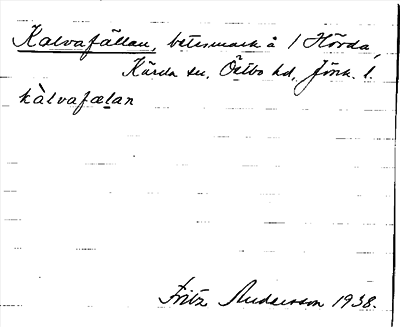 Kalvafällan, betesmark å 1 Hörda,
Kärda sn, Östbo hd, Jönk. l.
kàlvafælan
Fritz Andersson 1938.